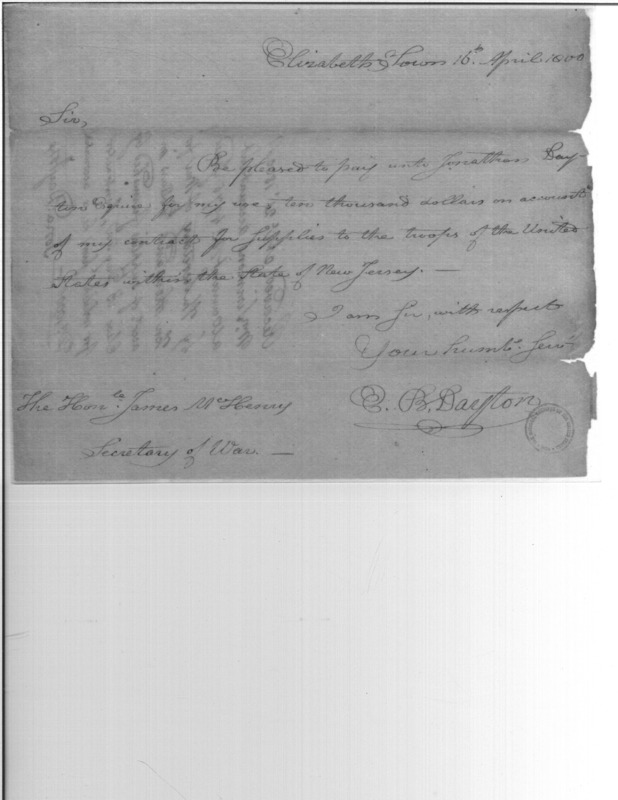 Elizabeth Town 16th. April 1800
Sir,
Be pleased to pay unto Jonathan Day-
ton Esquire for my use, ten thousand dollars on account
of my contract for supplies to the troops of the United
States within the State of New Jersey. —
I am Sir, with respect
Your humle. Servt.
E. B. Dayton
The Honle. James McHenry
Secretary of War. —